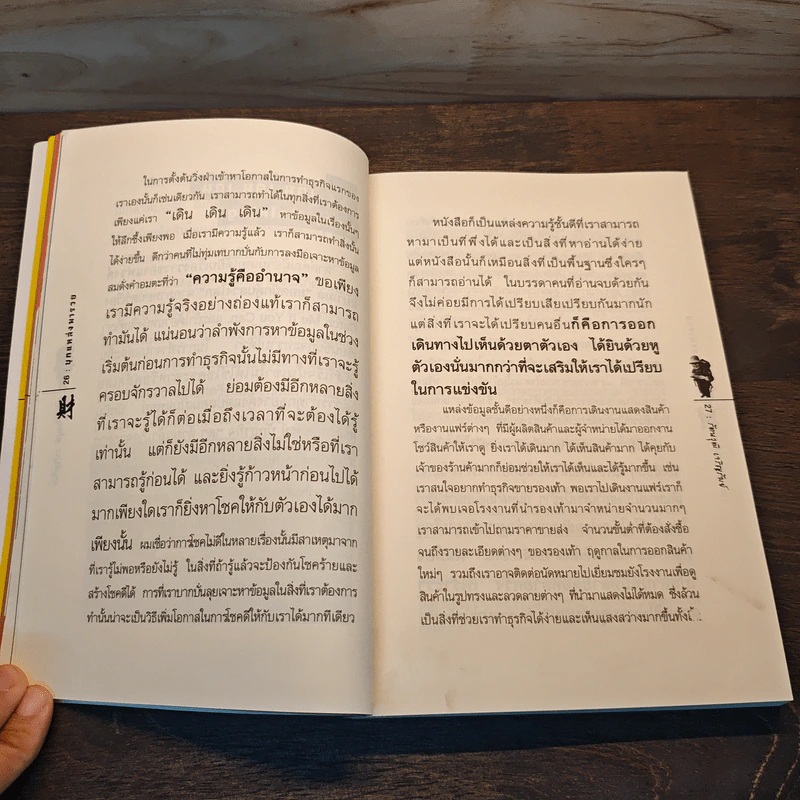 ในการตั้งต้นวิ่งฝ่าเข้าหาโอกาสในการทำธุรกิจแรกของ
เราเองนั้นก็เช่นเดียวกัน เราสามารถทำได้ในทุกสิ่งที่เราต้องการ
เพียงแค่เรา “เดิน เดิน เดิน” หาข้อมูลในเรื่องนั้นๆ
ให้ลึกซึ้งเพียงพอ เมื่อเรามีความรู้แล้ว เราก็สามารถทำสิ่งนั้น
ได้ง่ายขึ้น ดีกว่าคนที่ไม่ทุ่มเทบากบั่นกับการลงมือเจาะหาข้อมูล
สมดั่งคำอมตะที่ว่า “ความรู้คืออำนาจ” ขอเพียง
เรามีความรู้จริงอย่างถ่องแท้เราก็สามารถ
ทำมันได้ แน่นอนว่าลำพังการหาข้อมูลในช่วง
เริ่มต้นก่อนการทำธุรกิจนั้นไม่มีทางที่เราจะรู้
ครอบจักรวาลไปได้ ย่อมต้องมีอีกหลายสิ่ง
ที่เราจะรู้ได้ก็ต่อเมื่อถึงเวลาที่จะต้องได้รู้
เท่านั้น แต่ก็ยังมีอีกหลายสิ่งไม่ใช่หรือที่เรา
สามารถรู้ก่อนได้ และยิ่งรู้ก้าวหน้าก่อนไปได้
มากเพียงใดเราก็ยิ่งหาโชคให้กับตัวเองได้มาก
เพียงนั้น ผมเชื่อว่าการโชคไม่ดีในหลายเรื่องนั้นมีสาเหตุมาจาก
ที่เรารู้ไม่พอหรือยังไม่รู้ ในสิ่งที่ถ้ารู้แล้วจะป้องกันโชคร้ายและ
สร้างโชคดีได้ การที่เราบากบั่นลุยเจาะหาข้อมูลในสิ่งที่เราต้องการ
ทำนั้นน่าจะเป็นวิธีเพิ่มโอกาสในการโชคดีให้กับเราได้มากทีเดียว
26 : บุกแหลงมารวย
財
หนังสือก็เป็นแหล่งความรู้ชั้นดีที่เราสามารถ
หามาเป็นที่พึ่งได้และเป็นสิ่งที่หาอ่านได้ง่าย
แต่หนังสือนั้นก็เหมือนสิ่งที่เป็นพื้นฐานซึ่งใครๆ
ก็สามารถอ่านได้ ในบรรดาคนที่อ่านจบด้วยกัน
จึงไม่ค่อยมีการได้เปรียบเสียเปรียบกันมากนัก
แต่สิ่งที่เราจะได้เปรียบคนอื่นก็คือการออก
เดินทางไปเห็นด้วยตาตัวเอง ได้ยินด้วยหู
ตัวเองนั่นมากกว่าที่จะเสริมให้เราได้เปรียบ
ในการแข่งขัน
แหล่งข้อมูลชั้นดีอย่างหนึ่งก็คือการเดินงานแสดงสินค้า
หรืองานแฟร์ต่างๆ ที่มีผู้ผลิตสินค้าและผู้จำหน่ายได้มาออกงาน
โชว์สินค้าให้เราดู ยิ่งเราได้เดินมาก ได้เห็นสินค้ามาก ได้คุยกับ
เจ้าของร้านค้ามากก็ย่อมช่วยให้เราได้เห็นและได้รู้มากขึ้น เช่น
เราสนใจอยากทำธุรกิจขายรองเท้า พอเราไปเดินงานแฟร์เราก็
จะได้พบเจอโรงงานที่นำรองเท้ามาจำหน่ายจำนวนมากๆ
เราสามารถเข้าไปถามราคาขายส่ง จำนวนขั้นต่ำที่ต้องสั่งซื้อ
จนถึงรายละเอียดต่างๆ ของรองเท้า ฤดูกาลในการออกสินค้า
ใหม่ๆ รวมถึงเราอาจติดต่อนัดหมายไปเยี่ยมชมยังโรงงานเพื่อดู
สินค้าในรูปทรงและลวดลายต่างๆ ที่นำมาแสดงไม่ได้หมด ซึ่งล้วน
เป็นสิ่งที่ช่วยเราทำธุรกิจได้ง่ายและเห็นแสงสว่างมากขึ้นทั้ง
27 :